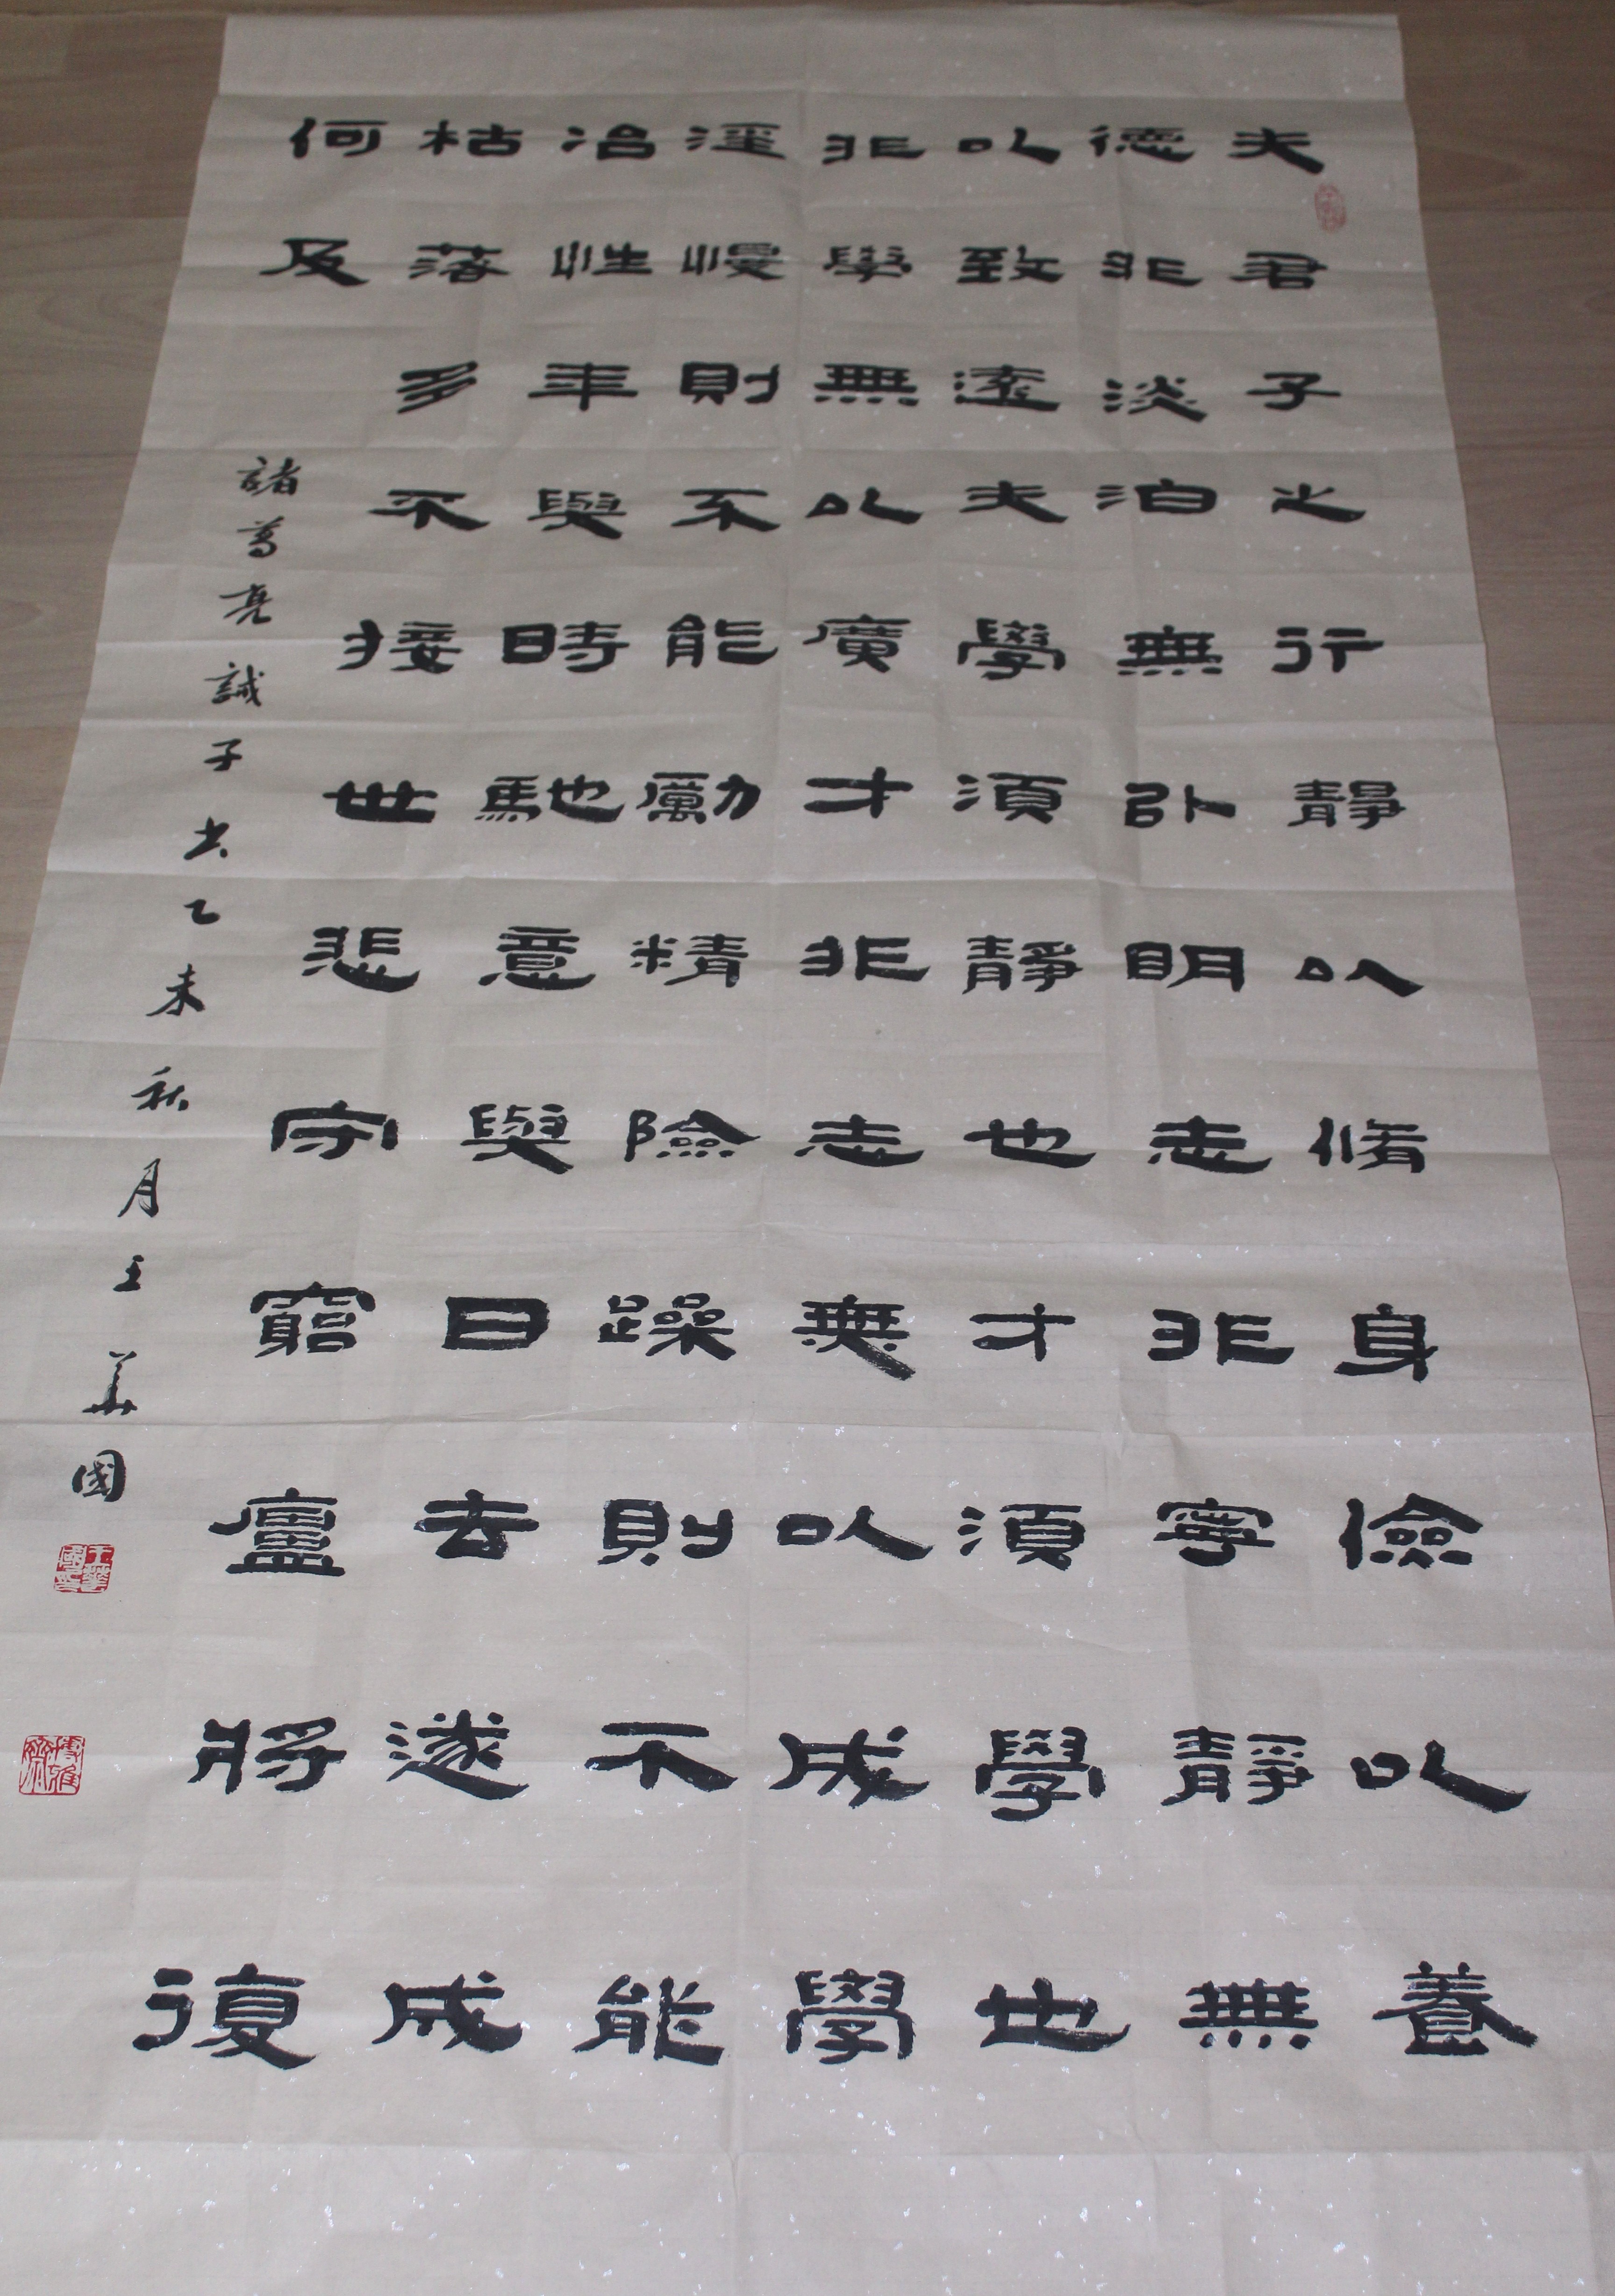 夫君子之行靜以脩身儉以養
德非淡泊無以眀志非寧靜無
以致遠夫學須靜也才須學也
非學無以廣才非志無以成學
淫慢則不能勵精險躁則不能
冶性年與時馳意與日去遂成
枯落多不接世悲守窮廬將復
何及
諸葛亮誡子書乙未秋月王華國
王華國印
博雅齋